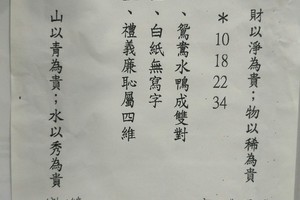 財以淨為貴；物以稀為貴
＊10 18 22 34
、鴛鴦水鴨成雙對
、白紙無寫字
、禮義廉恥屬四維
山以青為貴；水以秀為貴